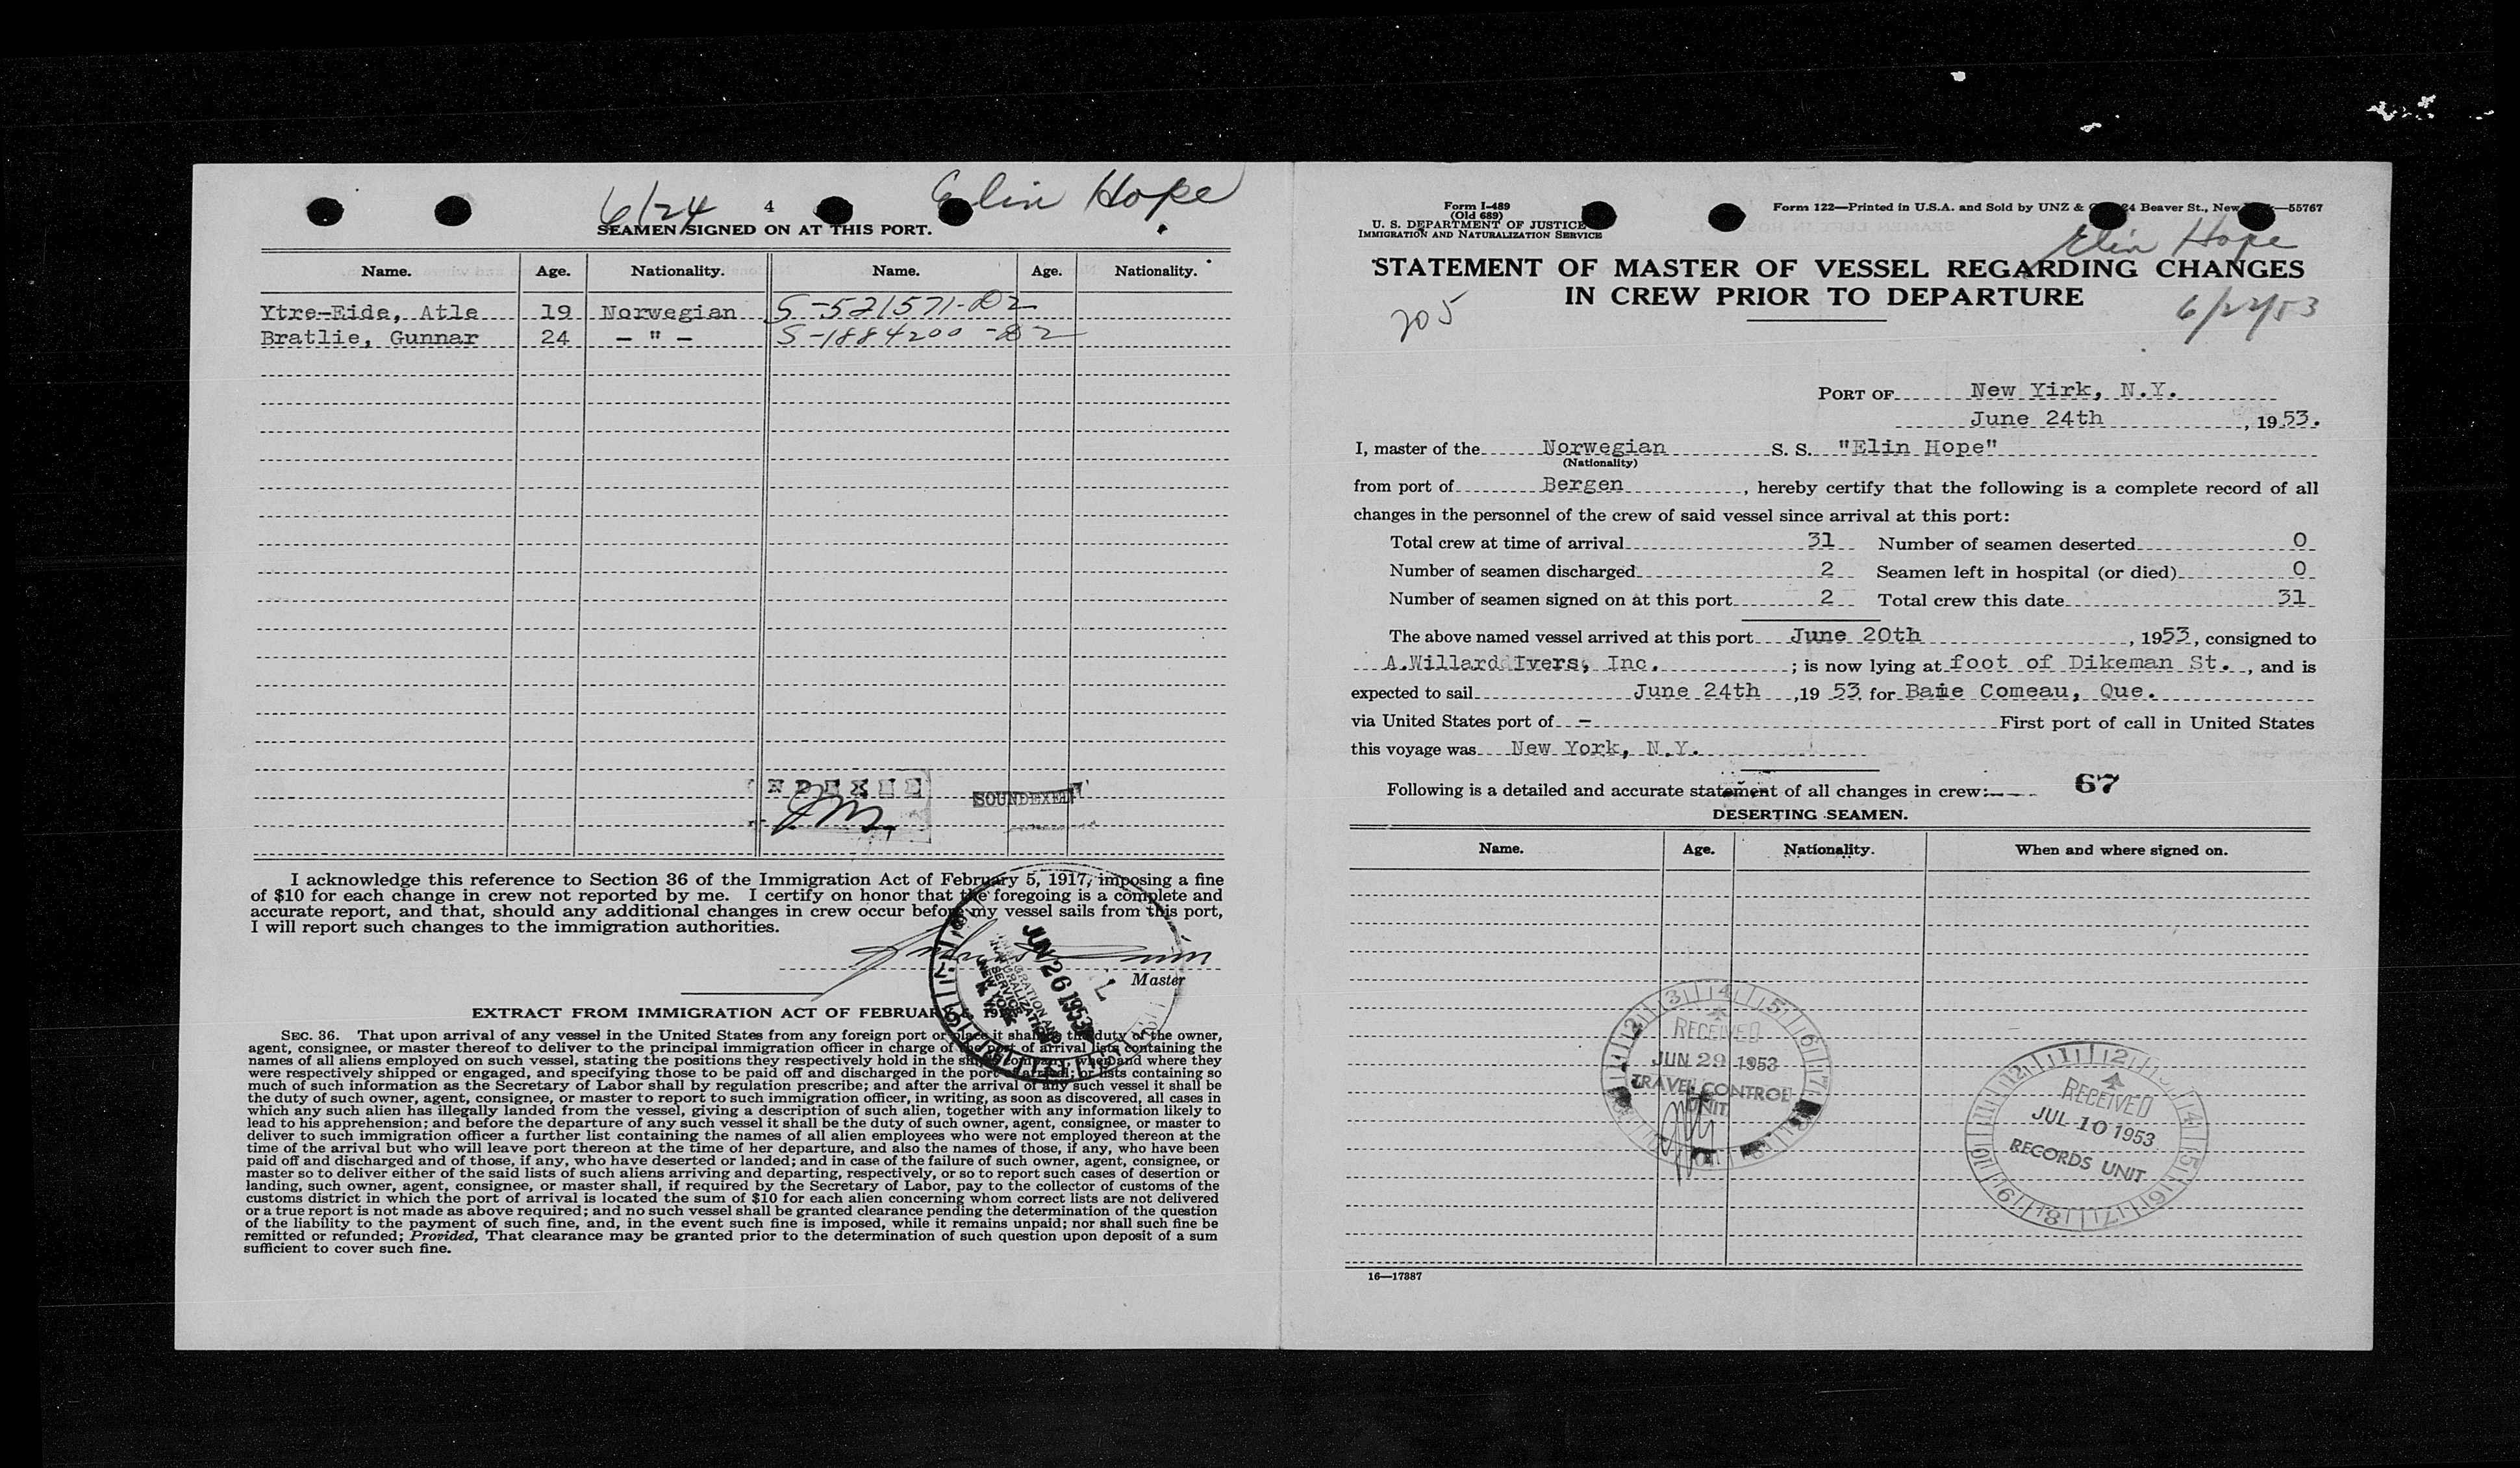 6/24
4
Elin Hope
SEAMEN SIGNED ON AT THIS PORT.
Name. Age. Nationality. Name. Age. Nationality.
Ytre-Eide, Atle 19 Norwegian S-521571-D2
Bratlie, Gunnar 24 - " - S-1884200-D2
INDEXED
SOUNDEXED
I acknowledge this reference to Section 36 of the Immigration Act of February 5, 1917, imposing a fine
of $10 for each change in crew not reported by me. I certify on honor that the foregoing is a complete and
accurate report, and that, should any additional changes in crew occur before my vessel sails from this port,
I will report such changes to the immigration authorities.
Master
JUN 26 1953
IMMIGRATION AND
NATURALIZATION
SERVICE
NEW YORK
N. Y.
EXTRACT FROM IMMIGRATION ACT OF FEBRUARY 5, 1917
SEC. 36. That upon arrival of any vessel in the United States from any foreign port or place it shall be the duty of the owner,
agent, consignee, or master thereof to deliver to the principal immigration officer in charge of the port of arrival lists containing the
names of all aliens employed on such vessel, stating the positions they respectively hold in the ship's company, when and where they
were respectively shipped or engaged, and specifying those to be paid off and discharged in the port of arrival; or lists containing so
much of such information as the Secretary of Labor shall by regulation prescribe; and after the arrival of any such vessel it shall be
the duty of such owner, agent, consignee, or master to report to such immigration officer, in writing, as soon as discovered, all cases in
which any such alien has illegally landed from the vessel, giving a description of such alien, together with any information likely to
lead to his apprehension; and before the departure of any such vessel it shall be the duty of such owner, agent, consignee, or master to
deliver to such immigration officer a further list containing the names of all alien employees who were not employed thereon at the
time of the arrival but who will leave port thereon at the time of her departure, and also the names of those, if any, who have been
paid off and discharged and of those, if any, who have deserted or landed; and in case of the failure of such owner, agent, consignee, or
master so to deliver either of the said lists of such aliens arriving and departing, respectively, or so to report such cases of desertion or
landing, such owner, agent, consignee, or master shall, if required by the Secretary of Labor, pay to the collector of customs of the
customs district in which the port of arrival is located the sum of $10 for each alien concerning whom correct lists are not delivered
or a true report is not made as above required; and no such vessel shall be granted clearance pending the determination of the question
of the liability to the payment of such fine, and, in the event such fine is imposed, while it remains unpaid; nor shall such fine be
remitted or refunded; Provided, That clearance may be granted prior to the determination of such question upon deposit of a sum
sufficient to cover such fine.
Form I-489
(Old 689)
U. S. DEPARTMENT OF JUSTICE
IMMIGRATION AND NATURALIZATION SERVICE
Form 122—Printed in U.S.A. and Sold by UNZ & 24 Beaver St., New —55767
Elin Hope
STATEMENT OF MASTER OF VESSEL REGARDING CHANGES
IN CREW PRIOR TO DEPARTURE
205
6/22/53
PORT OF New Yirk, N.Y.
June 24th, 1953.
I, master of the Norwegian S. S. "Elin Hope"
(Nationality)
from port of Bergen, hereby certify that the following is a complete record of all
changes in the personnel of the crew of said vessel since arrival at this port:
Total crew at time of arrival 31 Number of seamen deserted 0
Number of seamen discharged 2 Seamen left in hospital (or died) 0
Number of seamen signed on at this port 2 Total crew this date 31
The above named vessel arrived at this port June 20th, 1953, consigned to
A.Willard Ivers, Inc. ; is now lying at foot of Dikeman St., and is
expected to sail June 24th, 19 53 for Baie Comeau, Que.
via United States port of - First port of call in United States
this voyage was New York, N.Y.
Following is a detailed and accurate statement of all changes in crew:
67
DESERTING SEAMEN.
Name. Age. Nationality. When and where signed on.
RECEIVED
JUN 29 1953
TRAVEL CONTROL
UNIT
RECEIVED
JUL 10 1953
RECORDS UNIT
16—17887